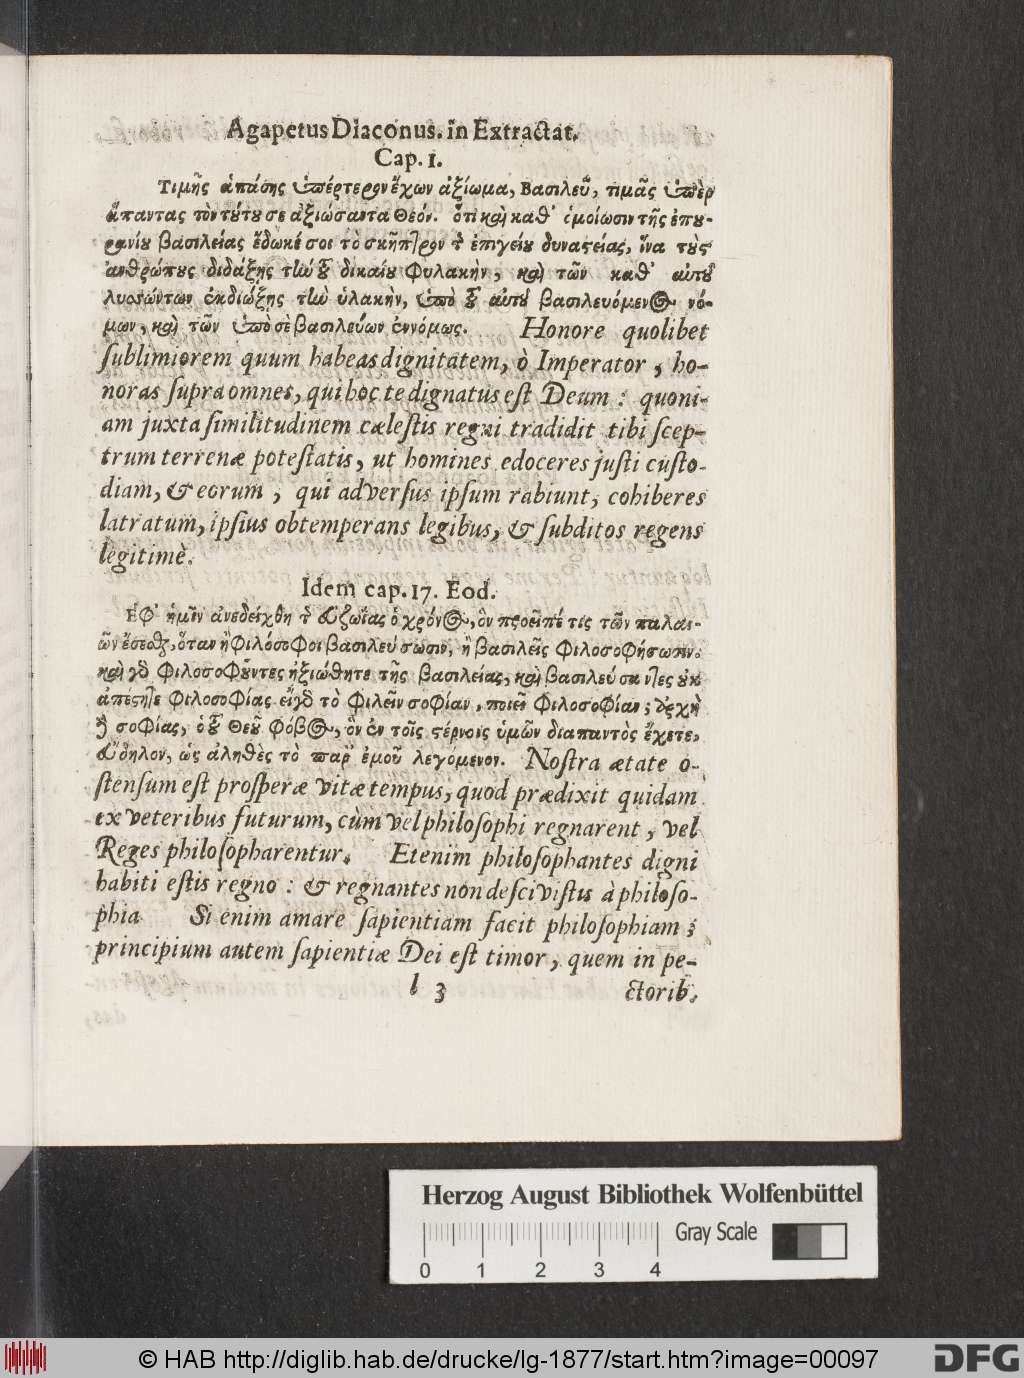 Agapetus Diaconus. in Extractat.
Cap. 1.
Τιμῆς ἁπάσης ὑπέρτερον ἔχων ἀξίωμα, Βασιλεῦ, τιμᾶς ὑπὲρ
ἅπαντας τὸν τούτου σε ἀξιώσαντα Θεόν. ὅτι καὶ καθ' ὁμοίωσιν τῆς ἐπου-
ρανίου βασιλείας ἔδωκέ σοι τὸ σκῆπτρον τῆς ἐπιγείου δυναστείας, ἵνα τοὺς
ἀνθρώπους διδάξης τὴν τοῦ δικαίου φυλακὴν, καὶ τῶν καθ' αὐτοῦ
λυσσώντων ἐκδιώξης τὴν ὑλακὴν, ὑπὸ τῶν αὐτοῦ βασιλευόμενος νό-
μων, καὶ τῶν ὑπὸ σὲ βασιλεύων ἐννόμως. Honore quolibet
sublimiorem quum habeas dignitatem, ô Imperator, ho-
noras supra omnes, qui hoc te dignatus est Deum: quoni-
am juxta similitudinem cælestis regni tradidit tibi scep-
trum terrenæ potestatis, ut homines edoceres justi custo-
diam, & eorum, qui adversus ipsum rabiunt, cohiberes
latratum, ipsius obtemperans legibus, & subditos regens
legitimè.
Idem cap. 17. Eod.
Ἐφ' ἡμῖν ἀνεδείχθη τῆς εὐζωΐας ὁ χρόνος, ὃν προεῖπέ τις τῶν παλαι-
ῶν ἔσεσθαι, ὅταν ἢ φιλόσοφοι βασιλεύσωσιν, ἢ βασιλεῖς φιλοσοφήσωσιν.
καὶ γὰρ φιλοσοφοῦντες ἠξιώθητε τῆς βασιλείας, καὶ βασιλεύσαντες οὐκ
ἀπέστητε φιλοσοφίας εἰ γὰρ τὸ φιλεῖν σοφίαν, ποιεῖ φιλοσοφίαν; ἀρχὴ
δὲ σοφίας, ὁ τοῦ Θεοῦ φόβος, ὃν ἐν τοῖς στέρνοις ὑμῶν διαπαντὸς ἔχετε,
εὔδηλον, ὡς ἀληθὲς τὸ παρ' ἐμοῦ λεγόμενον. Nostra ætate o-
stensum est prosperæ vitæ tempus, quod prædixit quidam
ex veteribus futurum, cùm vel philosophi regnarent, vel
Reges philosopharentur. Etenim philosophantes digni
habiti estis regno: & regnantes non descivistis à philoso-
phia Si enim amare sapientiam facit philosophiam;
principium autem sapientiæ Dei est timor, quem in pe-
l 3 ctorib.
Herzog August Bibliothek Wolfenbüttel
Gray Scale
0 1 2 3 4
© HAB http://diglib.hab.de/drucke/lg-1877/start.htm?image=00097
DFG